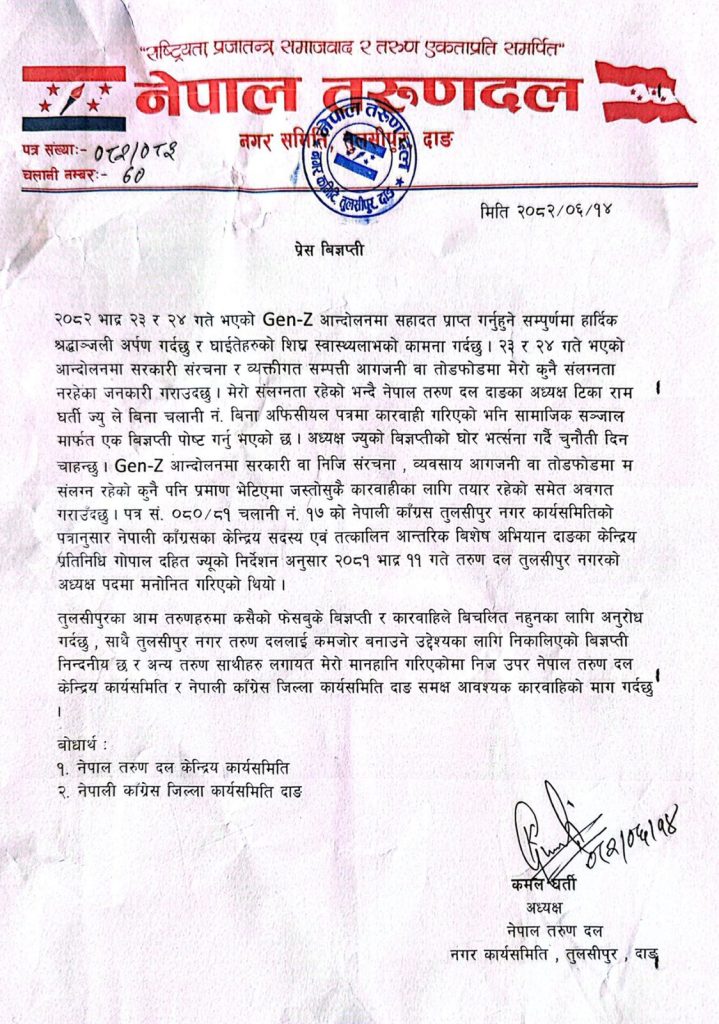 "राष्ट्रियता प्रजातन्त्र समाजवाद र तरुण एकताप्रति समर्पित"
नेपाल तरुणदल
नगर समिति, तुलसीपुर दाङ
पत्र संख्याः- ०८२/०८३
चलानी नम्बरः- ६०
नेपाल तरुण दल
नगर कमिटि, तुलसीपुर, दाङ
मिति २०८२/०६/१४
प्रेस बिज्ञप्ती
२०८२ भाद्र २३ र २४ गते भएको Gen-Z आन्दोलनमा सहादत प्राप्त गर्नुहुने सम्पुर्णमा हार्दिक
श्रद्धाञ्जली अर्पण गर्दछु र घाईतेहरुको शिघ्र स्वास्थ्यलाभको कामना गर्दछु । २३ र २४ गते भएको
आन्दोलनमा सरकारी संरचना र व्यक्तीगत सम्पत्ती आगजनी वा तोडफोडमा मेरो कुनै संलग्नता
नरहेका जनकारी गराउदछु । मेरो संलग्नता रहेको भन्दै नेपाल तरुण दल दाङका अध्यक्ष टिका राम
घर्ती ज्यु ले बिना चलानी नं. बिना अफिसीयल पत्रमा कारवाही गरिएको भनि सामाजिक सञ्जाल
मार्फत एक बिज्ञप्ती पोष्ट गर्नु भएको छ । अध्यक्ष ज्युको बिज्ञप्तीको घोर भर्त्सना गर्दै चुनौती दिन
चाहन्छु । Gen-Z आन्दोलनमा सरकारी वा निजि संरचना , व्यवसाय आगजनी वा तोडफोडमा म
संलग्न रहेको कुनै पनि प्रमाण भेटिएमा जस्तोसुकै कारवाहीका लागि तयार रहेको समेत अवगत
गराउँदछु । पत्र सं. ०८०/८१ चलानी नं. १७ को नेपाली काँग्रस तुलसीपुर नगर कार्यसमितिको
पत्रानुसार नेपाली काँग्रसका केन्द्रिय सदस्य एवं तत्कालिन आन्तरिक बिशेष अभियान दाङका केन्द्रिय
प्रतिनिधि गोपाल दहित ज्यूको निर्देशन अनुसार २०८१ भाद्र ११ गते तरुण दल तुलसीपुर नगरको
अध्यक्ष पदमा मनोनित गरिएको थियो ।
तुलसीपुरका आम तरुणहरुमा कसैको फेसबुके बिज्ञप्ती र कारवाहिले बिचलित नहुनका लागि अनुरोध
गर्दछु , साथै तुलसीपुर नगर तरुण दललाई कमजोर बनाउने उद्देश्यका लागि निकालिएको बिज्ञप्ती
निन्दनीय छ र अन्य तरुण साथीहरु लगायत मेरो मानहानि गरिएकोमा निज उपर नेपाल तरुण दल
केन्द्रिय कार्यसमिति र नेपाली काँग्रेस जिल्ला कार्यसमिति दाङ समक्ष आवश्यक कारवाहिको माग गर्दछु
।
बोधार्थ :
१. नेपाल तरुण दल केन्द्रिय कार्यसमिति
२. नेपाली काँग्रेस जिल्ला कार्यसमिति दाङ
०८२/०६/१४
कमल घर्ती
अध्यक्ष
नेपाल तरुण दल
नगर कार्यसमिति , तुलसीपुर , दाङ